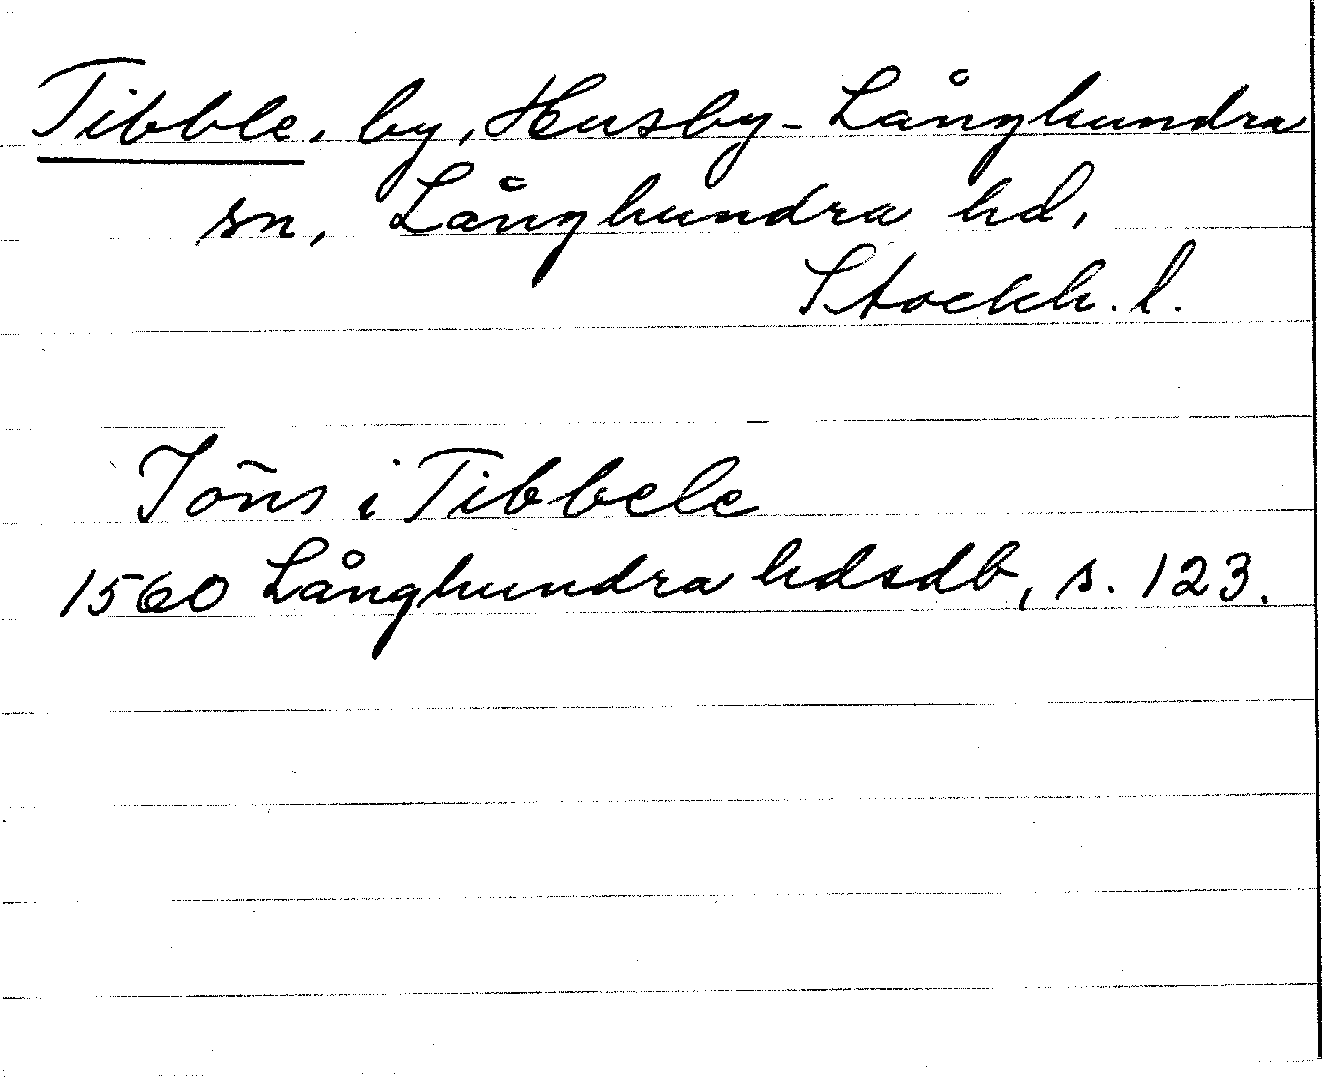 Tibble, by, Husby-Långhundra
sn, Långhundra hd,
Stockh. l.
Jöns i Tibbele
1560 Långhundra hdsdb, s. 123.